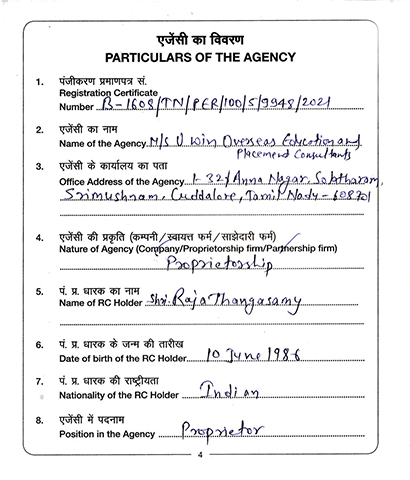 एजेंसी का विवरण
PARTICULARS OF THE AGENCY
1. पंजीकरण प्रमाणपत्र सं.
Registration Certificate
Number B-1608/TN/PER/100/5/9948/2021
2. एजेंसी का नाम
Name of the Agency M/S U Win Overseas Education and
Placement Consultants
3. एजेंसी के कार्यालय का पता
Office Address of the Agency 1-321 Anna Nagar,
Srimushnam, Cuddalore, Tamil Nadu - 608701
4. एजेंसी की प्रकृति (कम्पनी/स्वायत्त फर्म/साझेदारी फर्म)
Nature of Agency (Company/Proprietorship firm/Partnership firm)
Proprietorship
5. पं. प्र. धारक का नाम
Name of RC Holder Shri. Raja Thangasamy
6. पं. प्र. धारक के जन्म की तारीख
Date of birth of the RC Holder 10 June 1986
7. पं. प्र. धारक की राष्ट्रीयता
Nationality of the RC Holder Indian
8. एजेंसी में पदनाम
Position in the Agency Proprietor
4